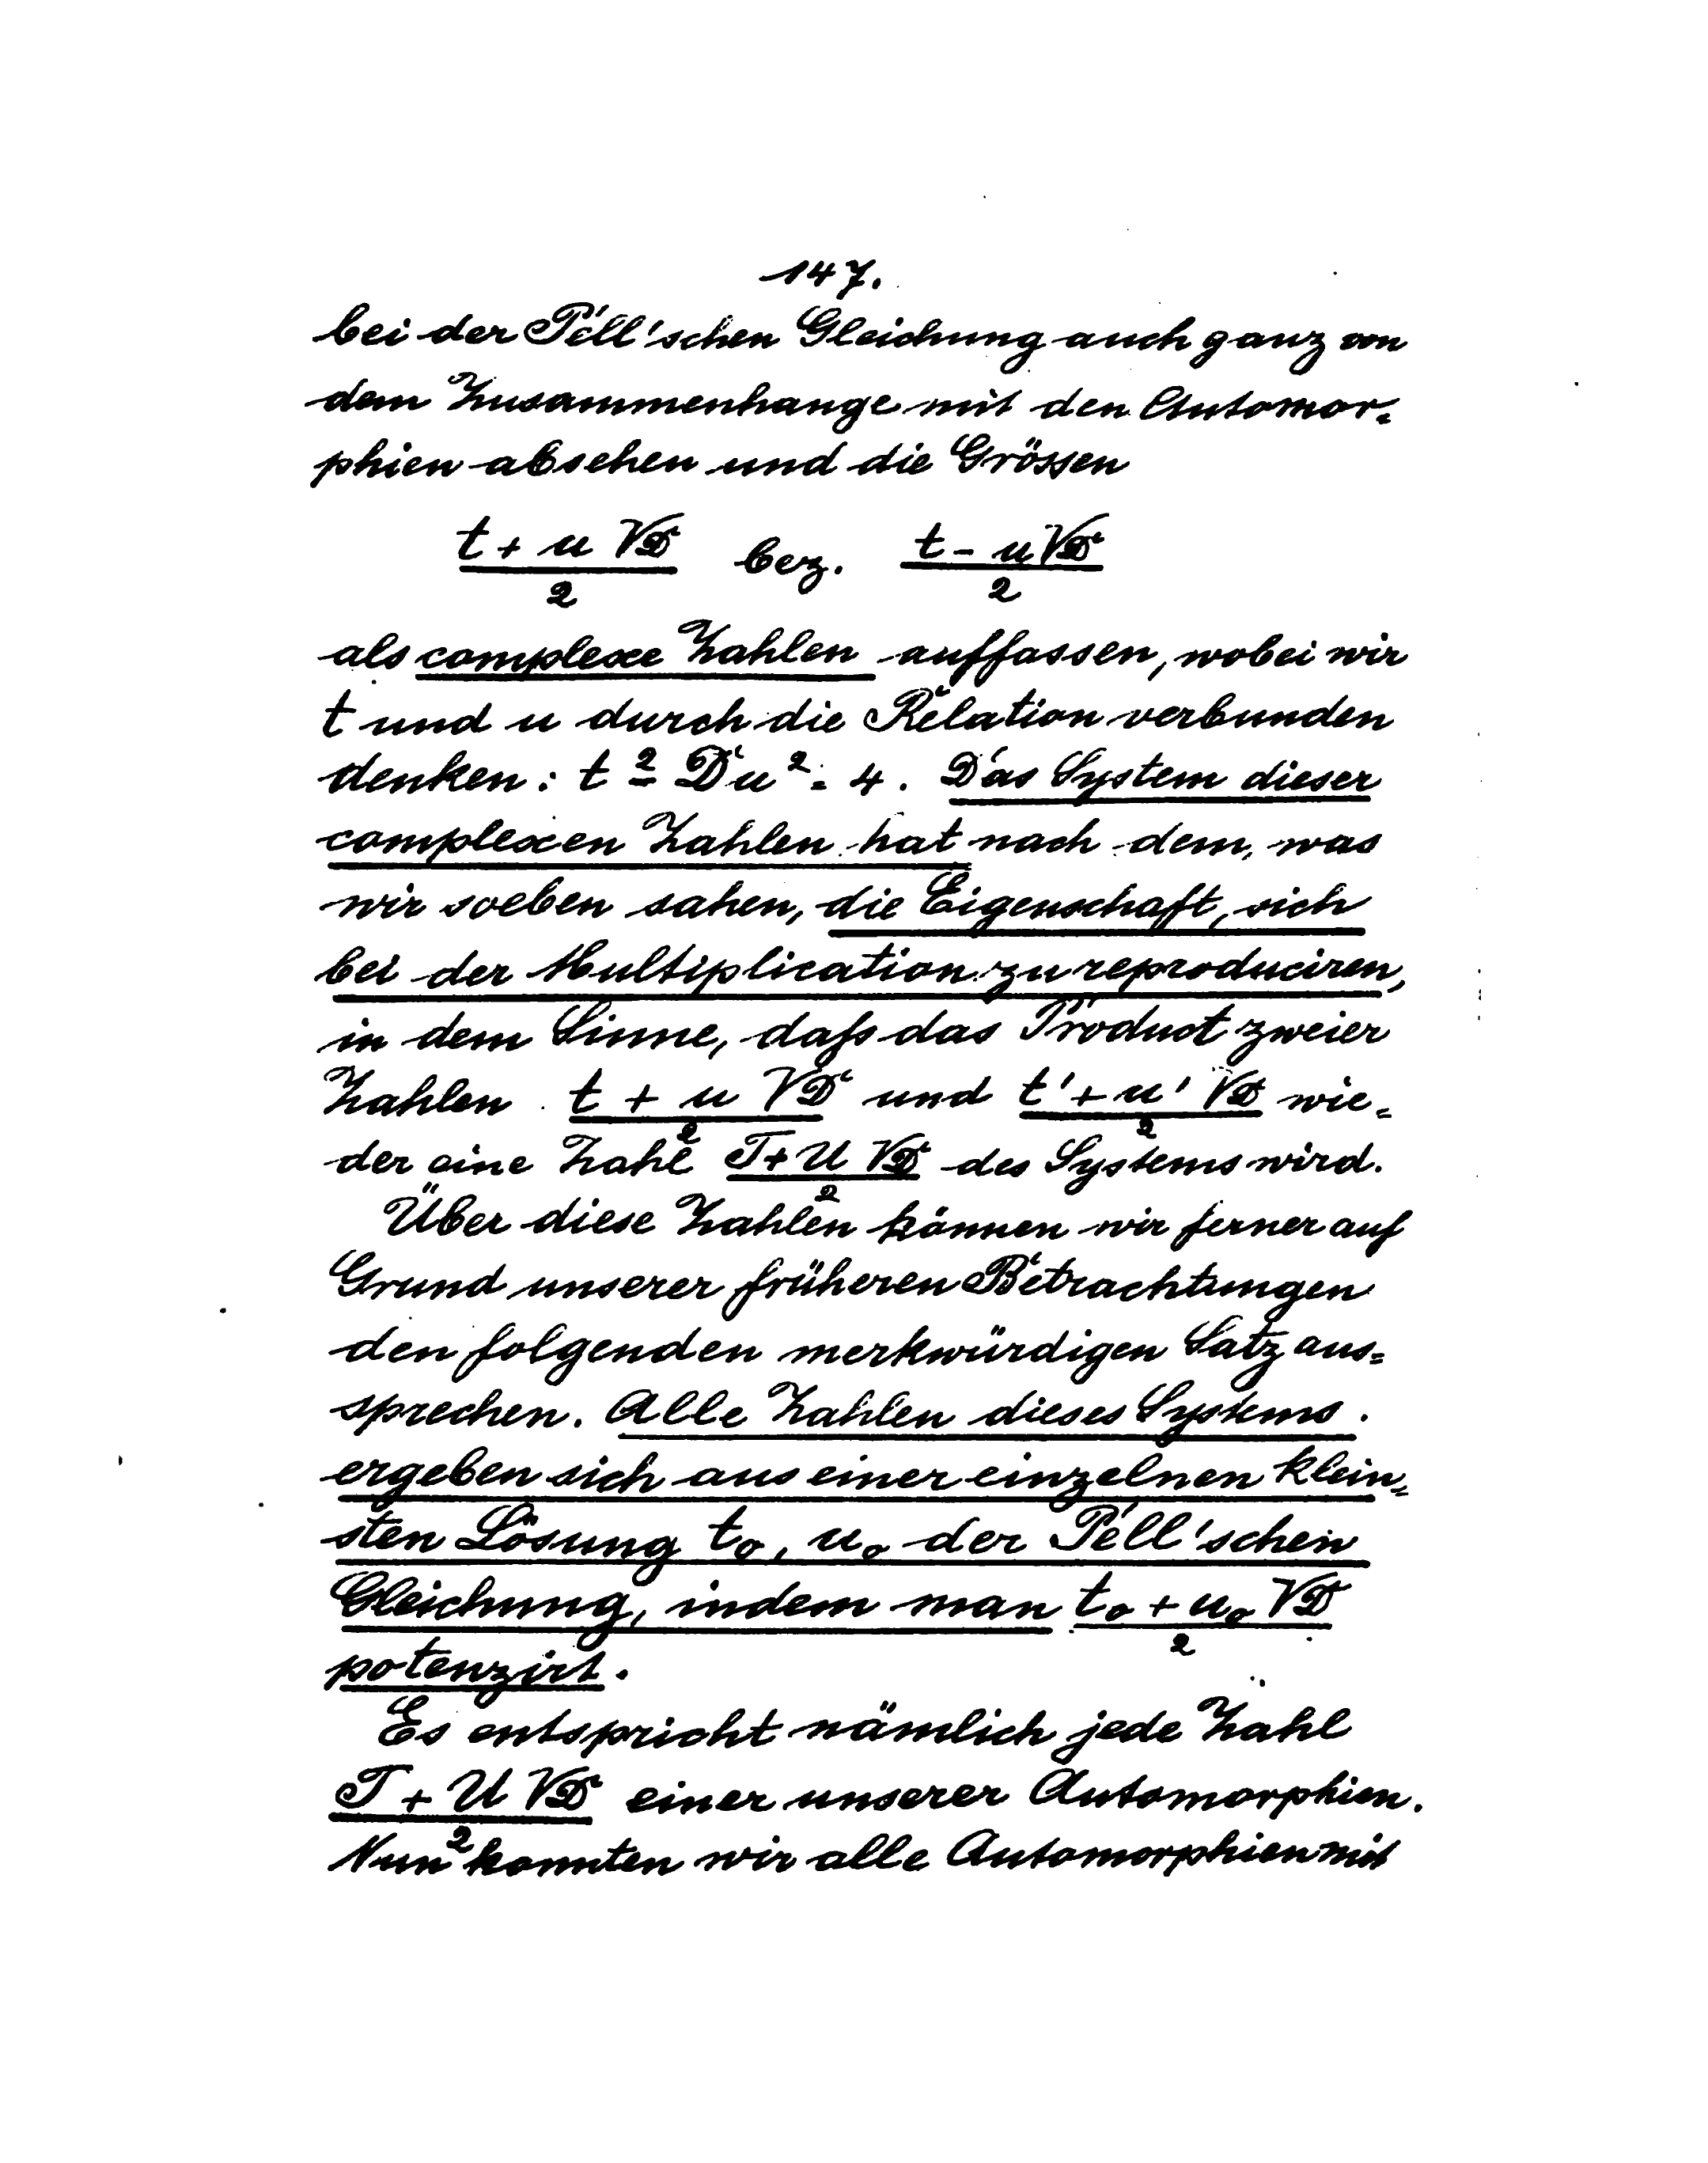 147.
bei der Pell'schen Gleichung auch ganz von
dem Zusammenhange mit den Automor=
phien absehen und die Grössen
(t + u √D)/2 bez. (t - u√D)/2
als complexe Zahlen auffassen, wobei wir
t und u durch die Relation verbunden
denken: t² - Du² = 4. Das System dieser
complexen Zahlen hat nach dem, was
wir soeben sahen, die Eigenschaft, sich
bei der Multiplication zu reproduciren,
in dem Sinne, daſs das Product zweier
Zahlen (t + u √D)/2 und (t' + u' √D)/2 wie=
der eine Zahl (T + U √D)/2 des Systems wird.
Über diese Zahlen können wir ferner auf
Grund unserer früheren Betrachtungen
den folgenden merkwürdigen Satz aus=
sprechen. Alle Zahlen dieses Systems
ergeben sich aus einer einzelnen klein=
sten Lösung t₀, u₀ der Pell'schen
Gleichung, indem man (t₀ + u₀ √D)/2
potenzirt.
Es entspricht nämlich jede Zahl
(T + U √D)/2 einer unserer Automorphien.
Nun konnten wir alle Automorphien mit